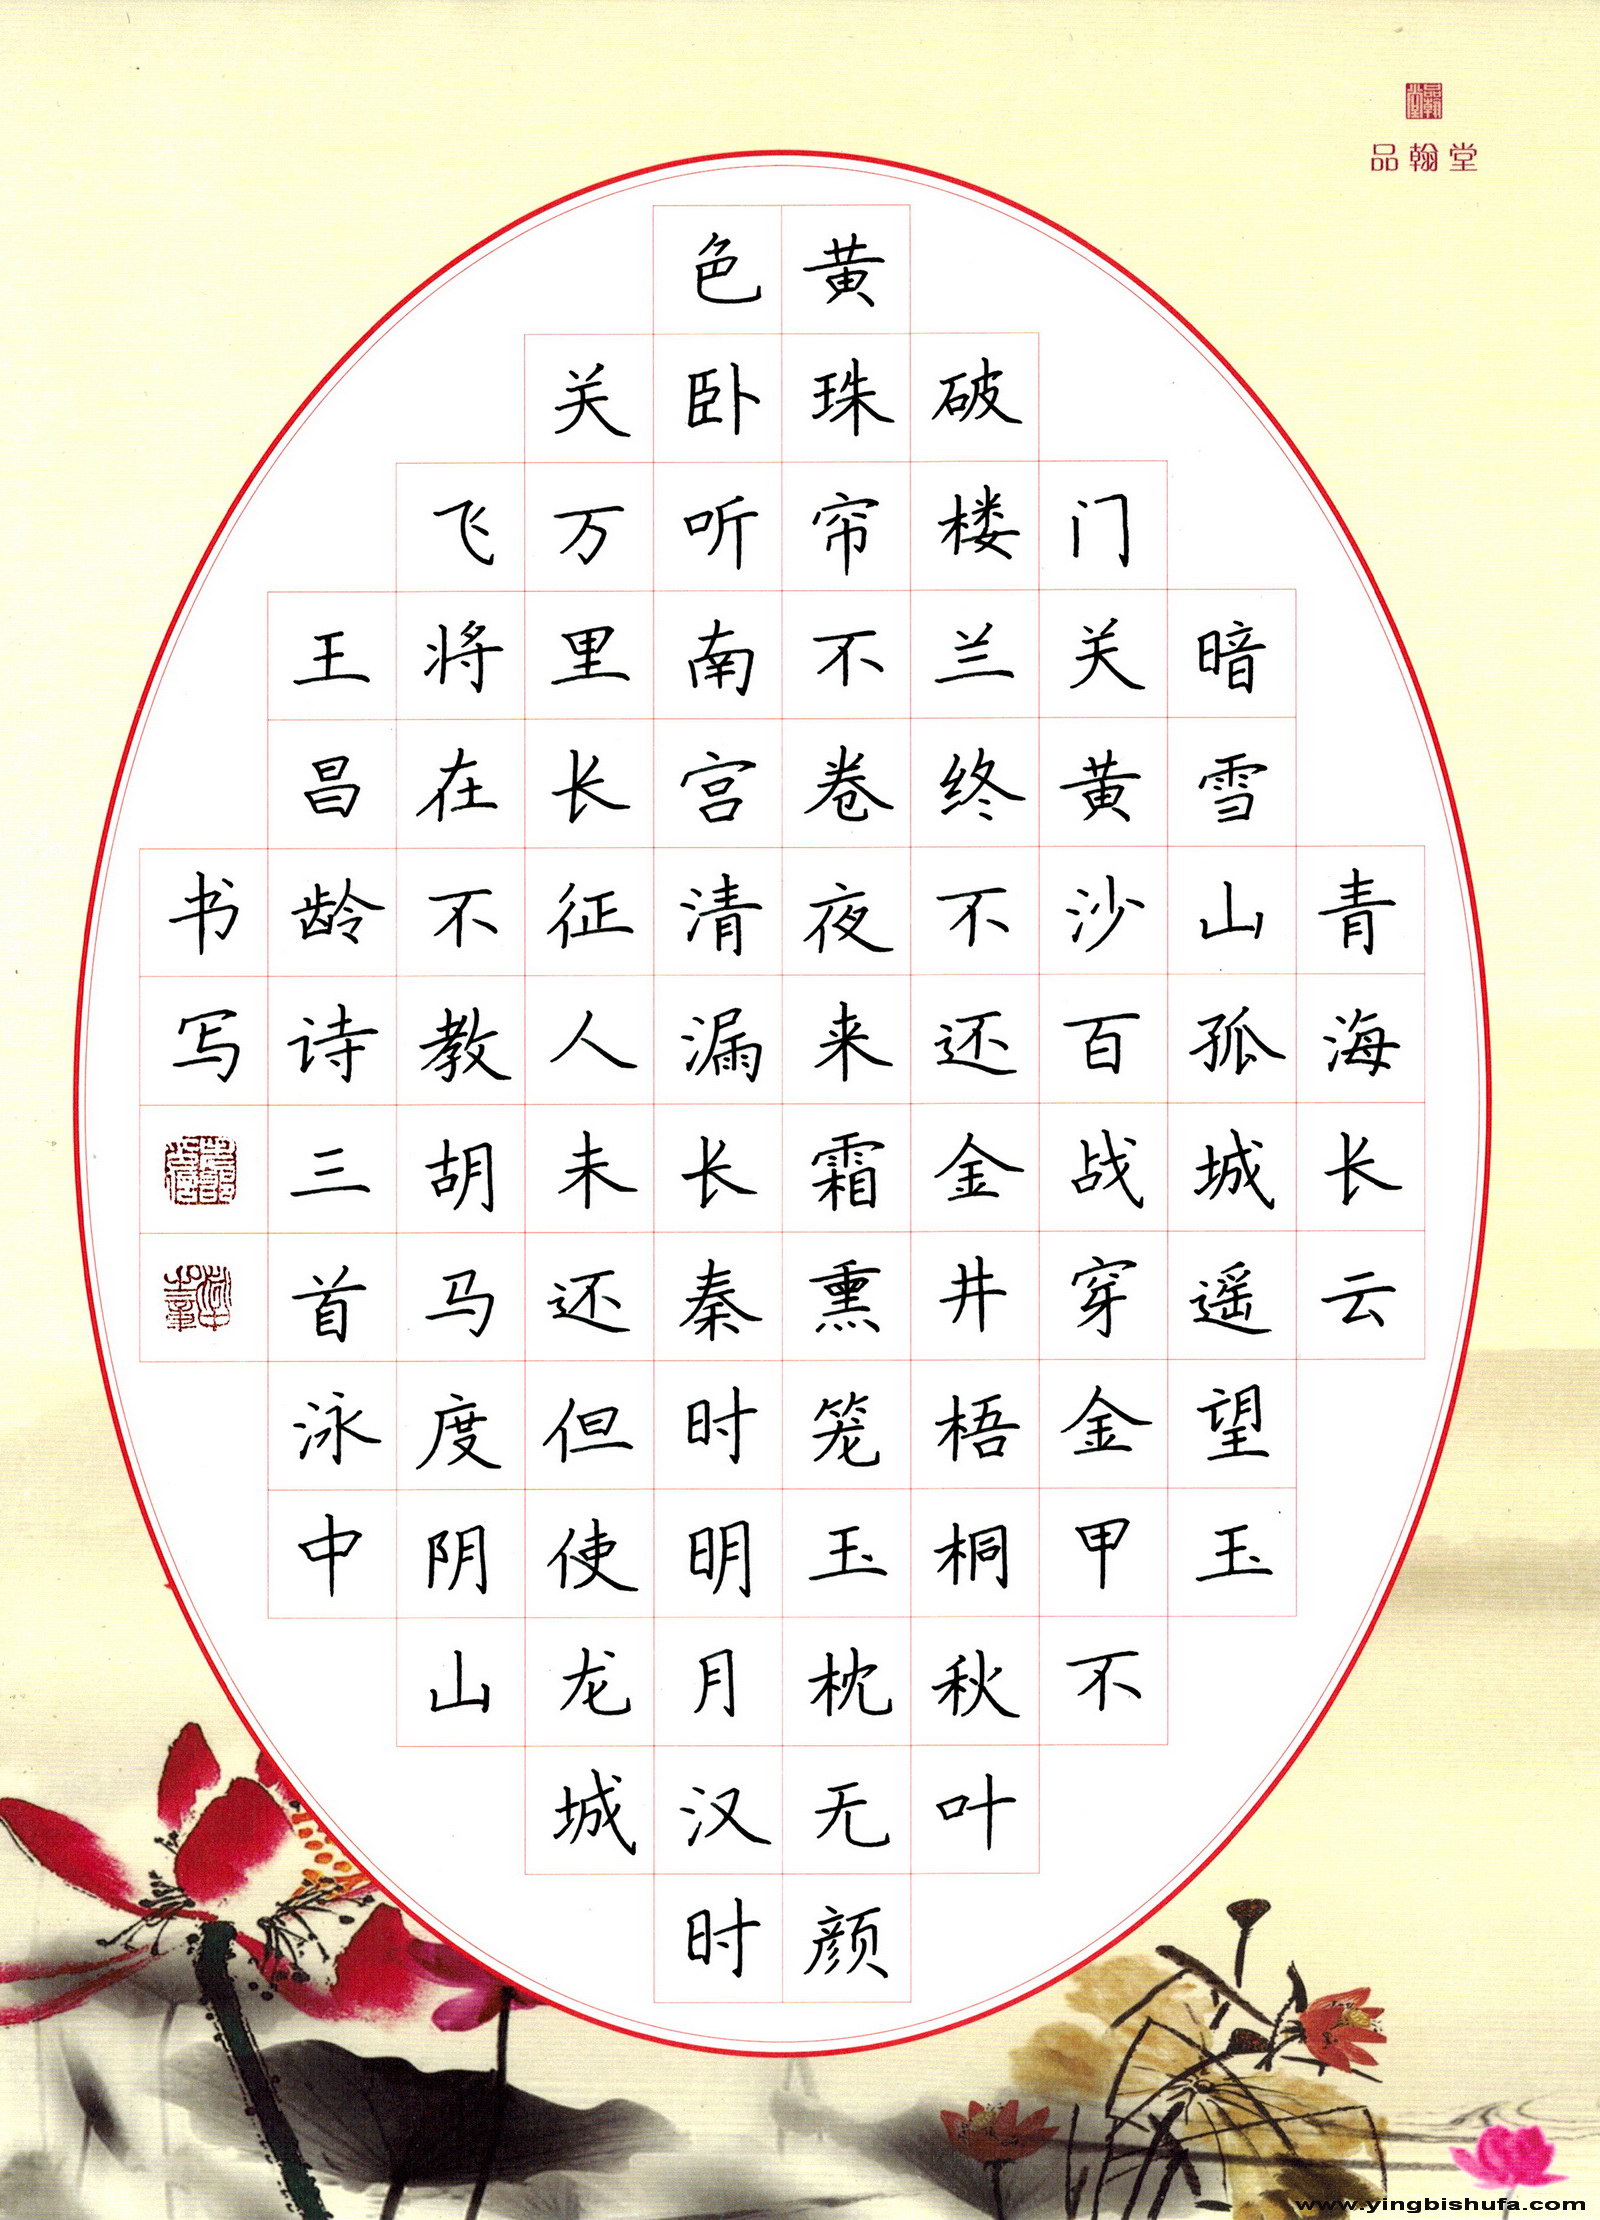 品翰堂
青海长云
暗雪山孤城遥望玉
门关黄沙百战穿金甲不
破楼兰终不还金井梧桐秋叶
黄珠帘不卷夜来霜熏笼玉枕无颜
色卧听南宫清漏长秦时明月汉时
关万里长征人未还但使龙城
飞将在不教胡马度阴山
王昌龄诗三首泳中
书写
www.yingbishufa.com